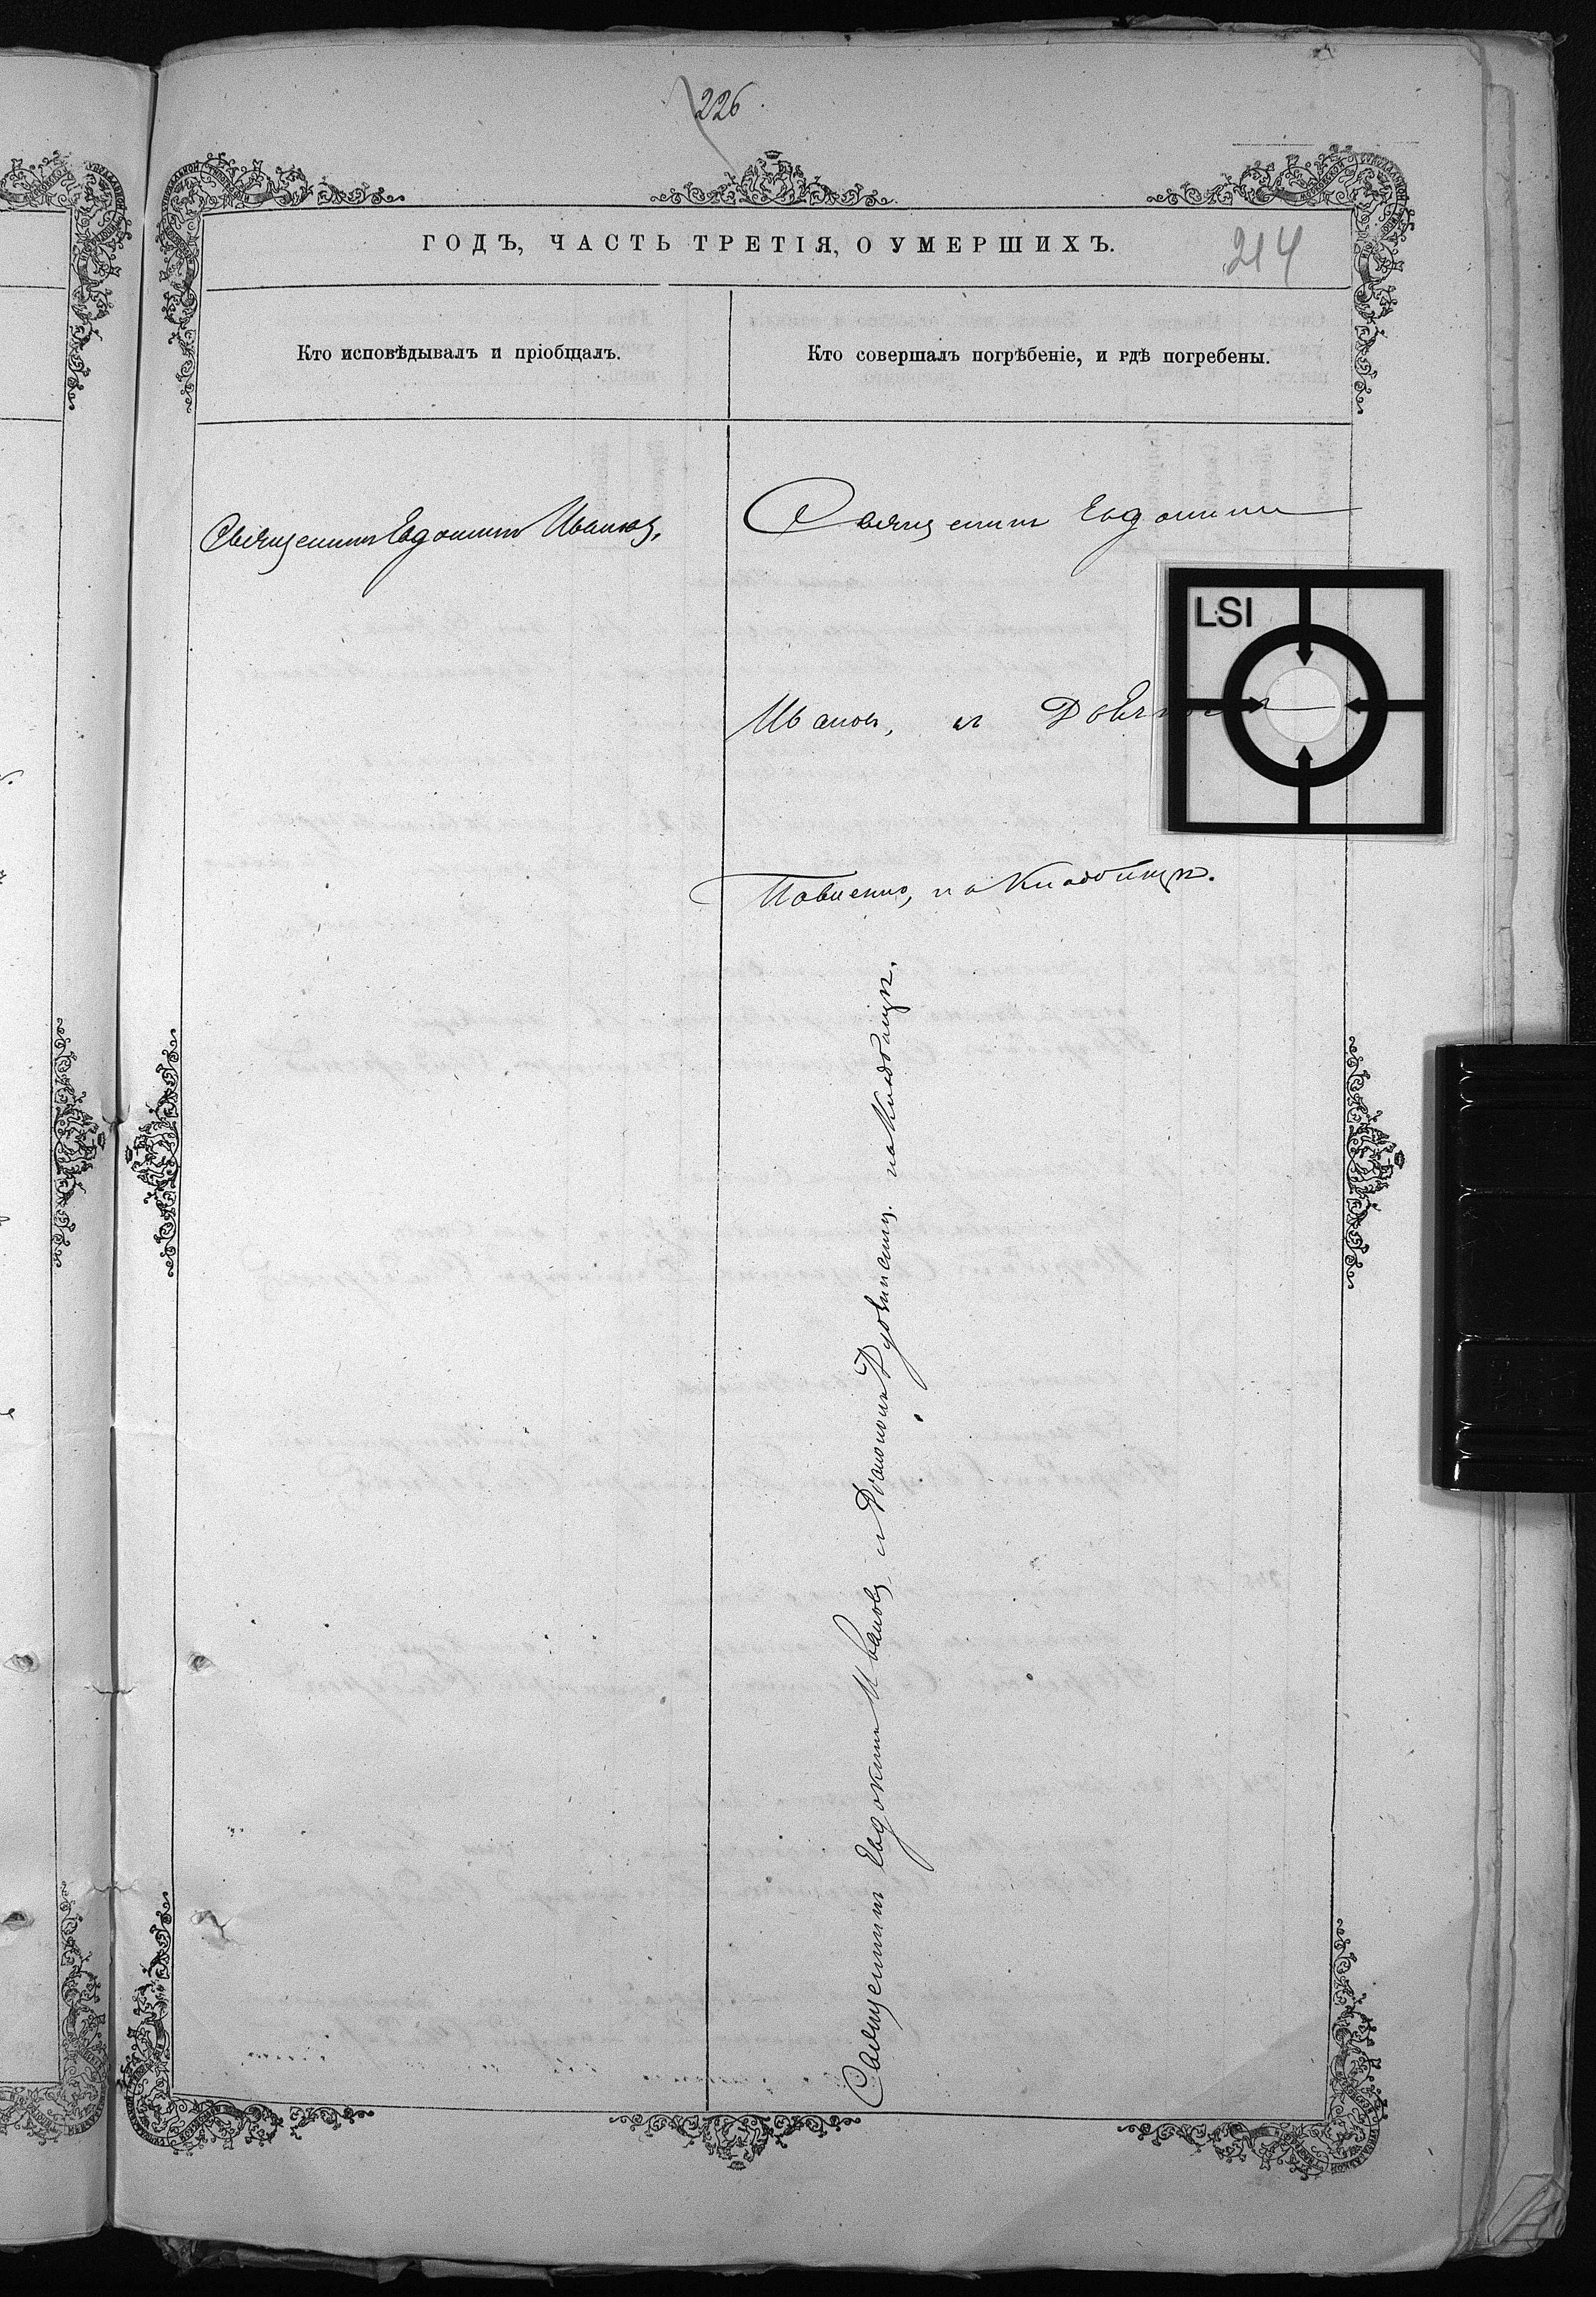 226
ГОДЪ, ЧАСТЬ ТРЕТІЯ, О УМЕРШИХЪ.
214
Кто исповѣдывалъ и пріобщалъ.
Кто совершалъ погрѣбеніе, и гдѣ погребены.
Священникъ Евдокимъ Ивановъ,
Священникъ Евдокимъ
LSI
Ивановъ, и
на Кладбищѣ.
Священникъ Евдокимъ Ивановъ и Діаконъ на Кладбищѣ.